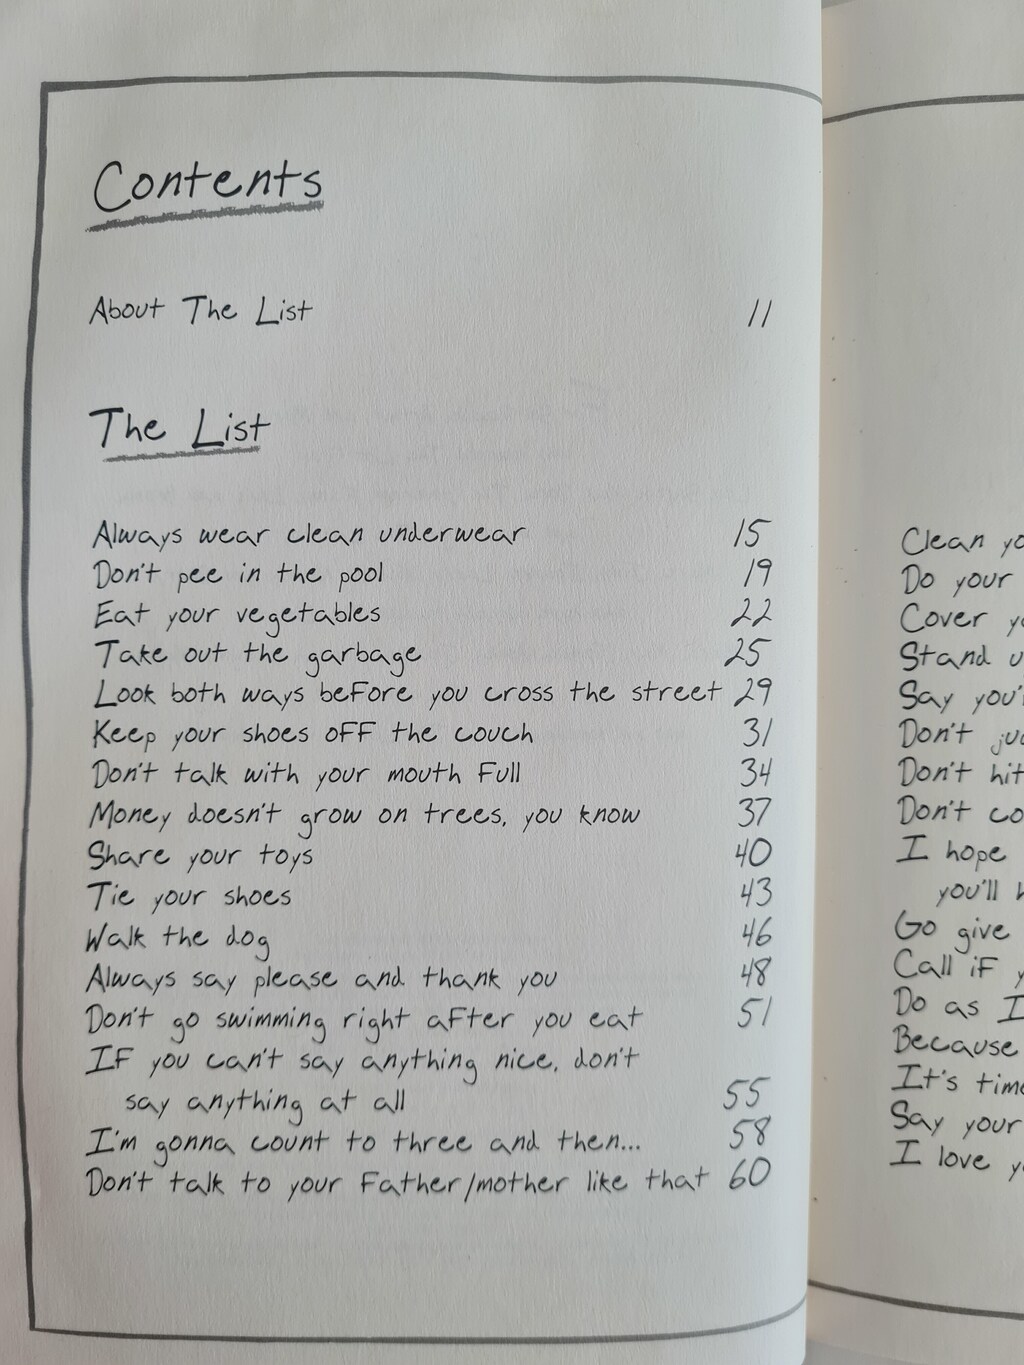 Contents
About The List 11
The List
Always wear clean underwear 15
Don't pee in the pool 19
Eat your vegetables 22
Take out the garbage 25
Look both ways before you cross the street 29
Keep your shoes off the couch 31
Don't talk with your mouth full 34
Money doesn't grow on trees, you know 37
Share your toys 40
Tie your shoes 43
Walk the dog 46
Always say please and thank you 48
Don't go swimming right after you eat 51
If you can't say anything nice, don't
say anything at all 55
I'm gonna count to three and then... 58
Don't talk to your father/mother like that 60
Clean
Do your
Cover
Stand
Say
Don't
Don't hit
Don't
I hope
you'll
Go give
Call if
Do as I
Because
It's
Say your
I love